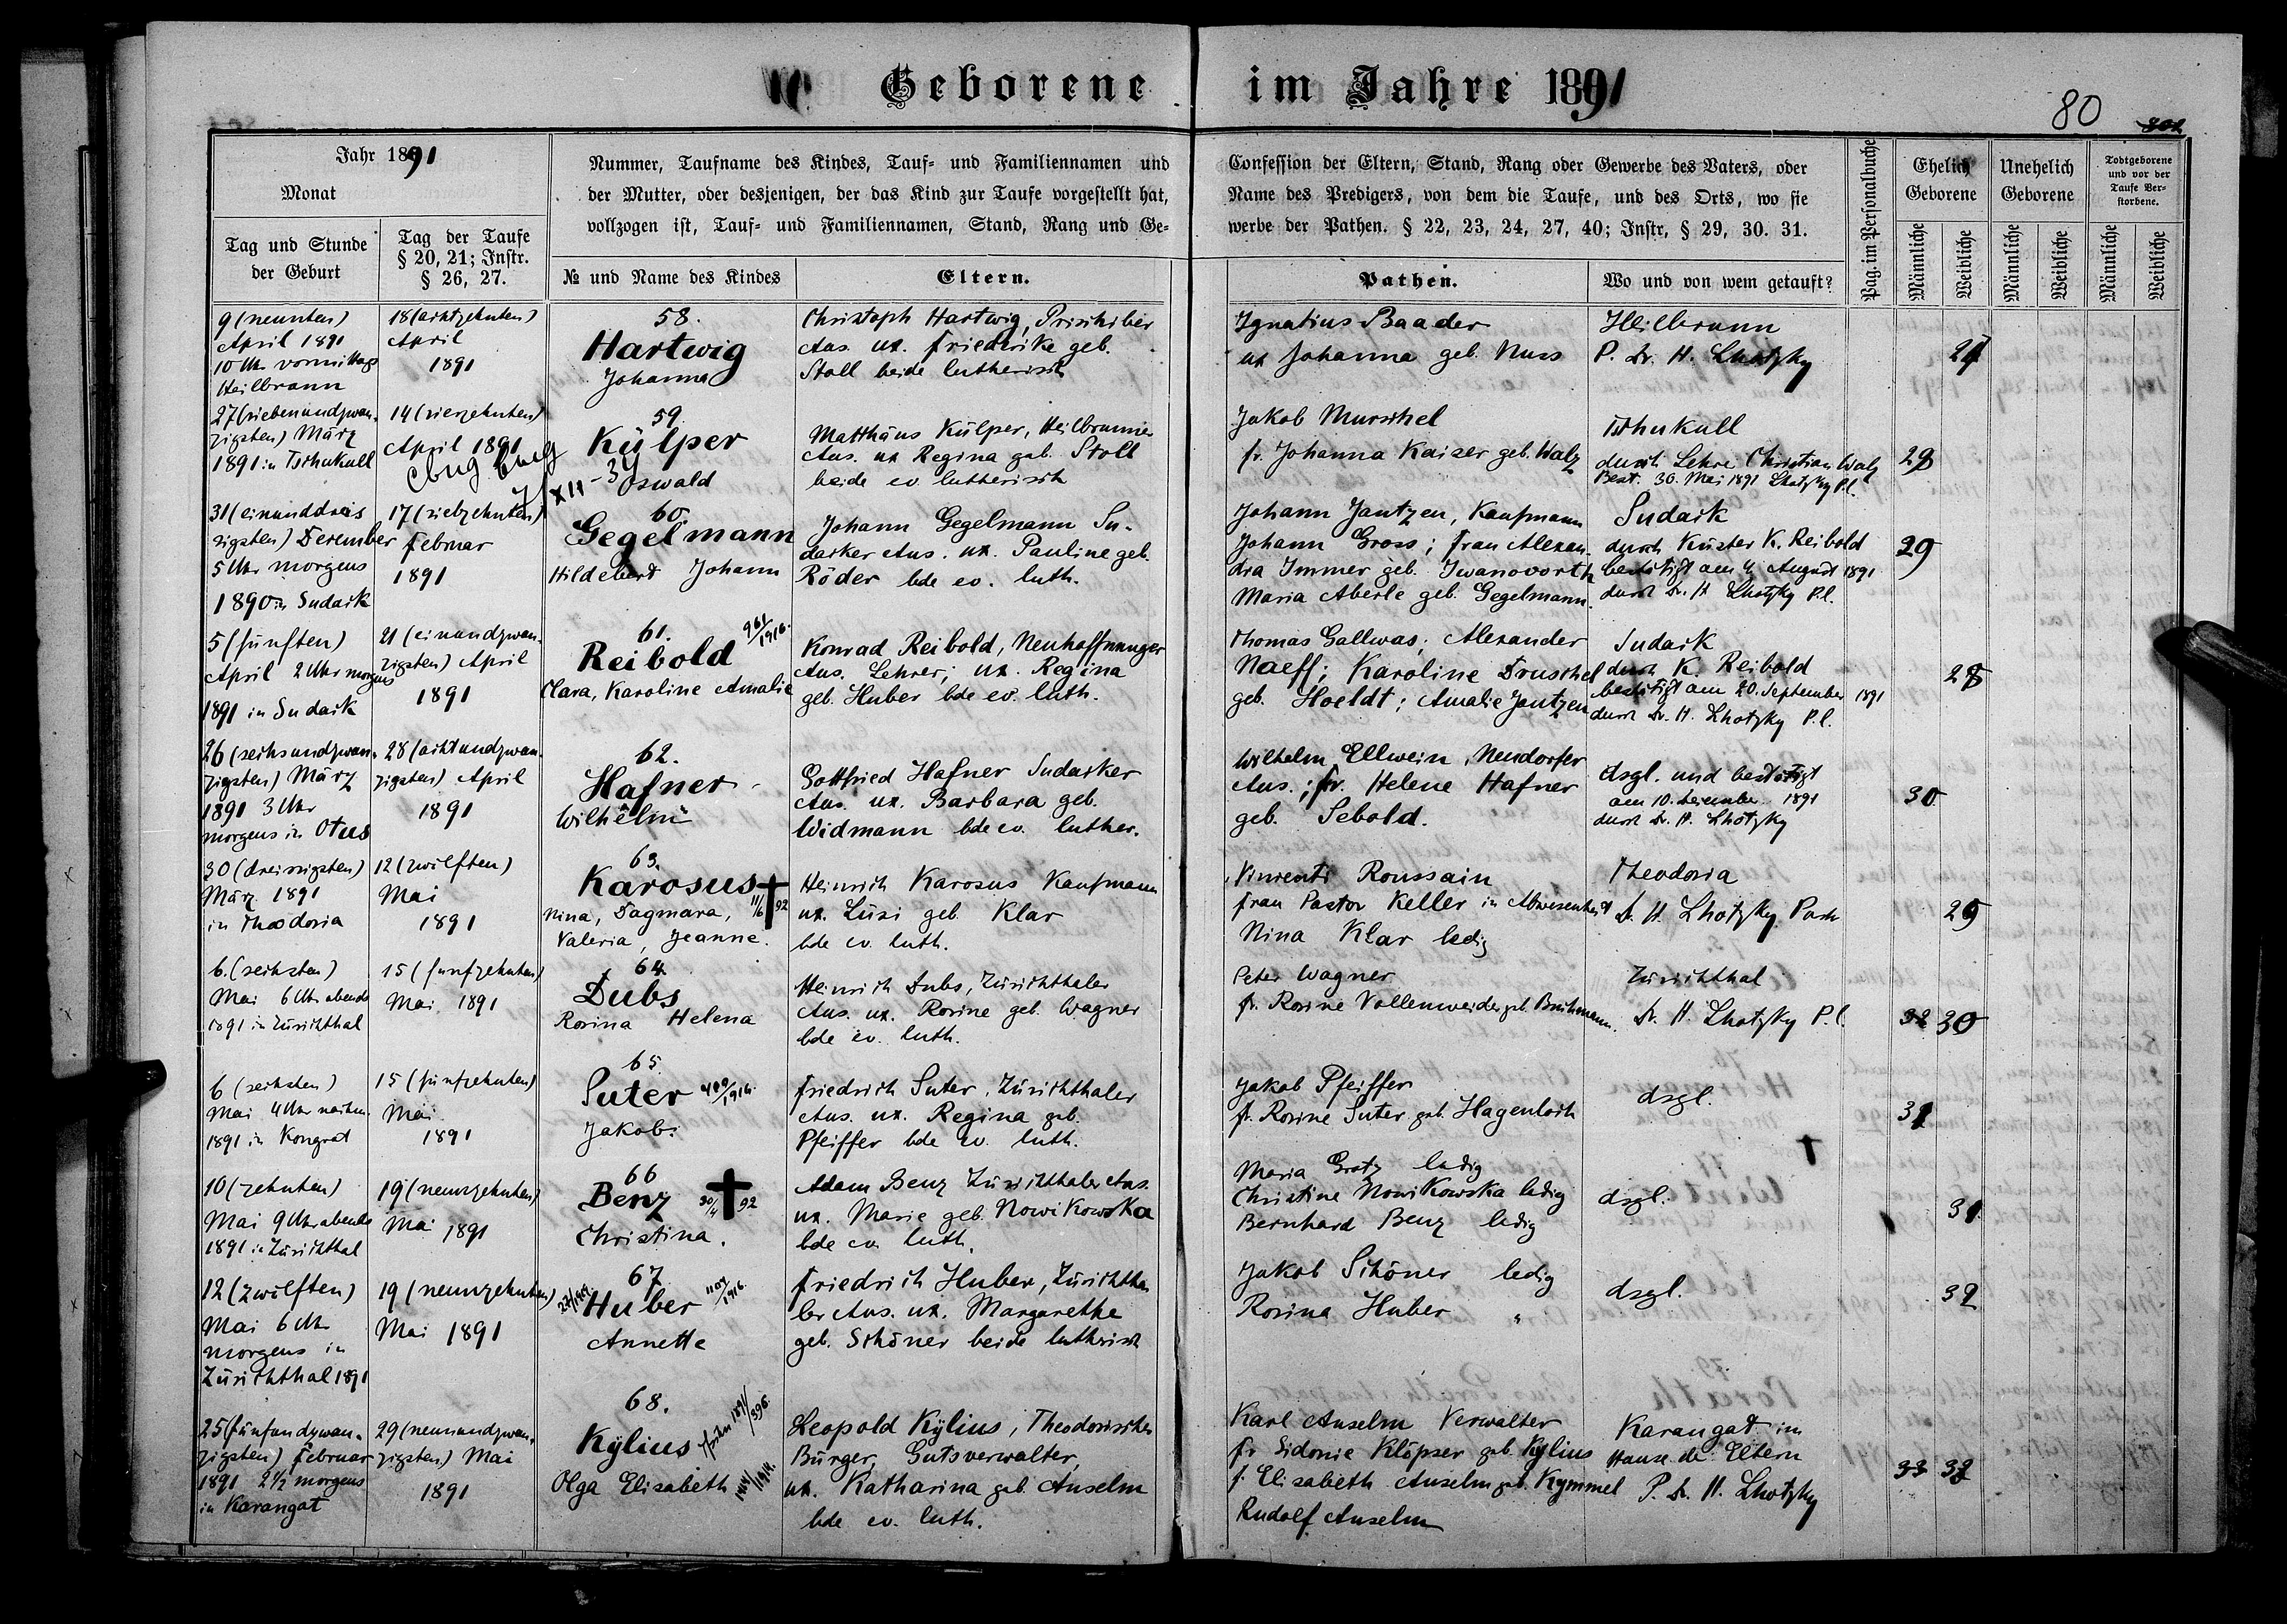 Geborene im Jahre 1891
80
Jahr 1891
Monat
Tag und Stunde der Geburt
Tag der Taufe § 20, 21; Instr. § 26, 27.
Nummer, Taufname des Kindes, Tauf- und Familiennamen und
der Mutter, oder desjenigen, der das Kind zur Taufe vorgestellt hat,
vollzogen ist, Tauf- und Familiennamen, Stand, Rang und Ge-
№ und Name des Kindes
Eltern.
Confession der Eltern, Stand, Rang oder Gewerbe des Vaters, oder
Name des Predigers, von dem die Taufe, und des Orts, wo sie
werbe der Pathen. § 22, 23, 24, 27, 40; Instr, § 29, 30. 31.
Pathen.
Wo und von wem getauft?
Pag. im Personalbuche
Ehelich Geborene
Unehelich Geborene
Todtgeborene und vor der Taufe Ver- storbene.
Männliche
Weibliche
Männliche
Weibliche
Männliche
Weibliche
9 (neunten)
April 1891
10 Uhr vormittags
Heilbrunn
18 (achtzehnten)
April
1891
58.
Hartwig
Johanna
Christoph Hartwig, Prischiber
Ans. ux. Friederike geb.
Stoll beide lutherisch
Ignatius Baader
ux Johanna geb. Nuss
Heilbrunn
P. Dr. H. Lhotzky
27
27 (siebenundzwan-
zigsten) März
1891 in Tschukull
14 (vierzehnten)
April 1891
59
Külper
Oswald
Matthäus Külper, Heilbrunner
Ans. ux Regina geb. Stoll
beide ev. lutherisch
Jakob Murschel
fr. Johanna Kaiser geb. Walz
Tschukull
durch Lehrer Christian Walz
Best. 30. Mai 1891 Lhotzky P.l.
28
31 (einunddreis
sigsten) Dezember
5 Uhr morgens
1890 in Sudack
17 (siebzehnten)
Februar
1891
60.
Gegelmann
Hildebert Johann
Johann Gegelmann Su-
daker Ans. ux. Pauline geb.
Röder bde ev. luth.
Johann Jantzen, Kaufmann
Johann Gross; Frau Alexan-
dra Immer geb. Iwanovorth
Maria Aberle geb. Gegelmann.
Sudack
durch Küster K. Reibold
bestätigt am 4 August 1891
durch Dr. H Lhotzky P.l.
29
5 (fünften)
April 2 Uhr morgens
1891 in Sudack
21 (einundzwan-
zigsten) April
1891
61.
Reibold
Clara, Karoline Amalie
Konrad Reibold, Neuhoffnunger
Ans. Lehrer; ux. Regina
geb. Huber bde ev. luth.
Thomas Gallwas; Alexander
Naeff; Karoline Druschel
geb. Hoeldt; Amalie Jantzen
Sudack
durch K. Reibold
bestätigt am 20. September 1891
durch Dr. H. Lhotzky P.l.
28
26 (sechsundzwan-
zigsten) März
1891 3 Uhr
morgens in Otus
28 (achtundzwan-
zigsten) April
1891
62.
Hafner
Wilhelm
Gottfried Hafner Sudacker
Ans. ux. Barbara geb.
Widmann bde ev. luther.
Wilhelm Ellwein, Neudorfer
Ans.; fr. Helene Hafner
geb. Sebold.
dsgl. und bestätigt
am 10. Dezember 1891
durch Dr. H. Lhotzky
30
30 (dreissigsten)
März 1891
in Theodosia
12 (zwölften)
Mai
1891
63.
Karosus † 11/6 92
Nina, Dagmara,
Valeria, Jeanne.
Heinrich Karosus Kaufmann
ux. Lusi geb. Klar
bde ev. luth.
Vincenti Roussain
Frau Pastor Keller in Abwesenheit
Nina Klar ledig
Theodosia
Dr. H. Lhotzky Past
29
6. (sechsten)
Mai 6 Uhr abends
1891 in Zürichthal
15 (fünfzehnten)
Mai 1891
64.
Dubs
Rosina Helena
Heinrich Dubs, Zürichthaler
Ans. ux. Rosine geb. Wagner
bde ev. luth.
Peter Wagner
fr. Rosine Vollenweider geb. Buchmann.
Zürichthal
Dr. H. Lhotzky P.l.
32 30
6 (sechsten)
Mai 4 Uhr nachm.
1891 in Kongrat
15 (fünfzehnten)
Mai
1891
65.
Suter
Jakob.
Friedrich Suter, Zürichthaler
Ans. ux. Regina geb.
Pfeiffer bde ev. luth.
Jakob Pfeiffer
fr. Rosine Suter geb. Hagenloch
dsgl.
31
10 (zehnten)
Mai 9 Uhr abends
1891 in Zürichthal
19 (neunzehnten)
Mai 1891
66
Benz 30/4 † 92
Christina.
Adam Benz Zürichthaler Ans.
ux. Marie geb. Nowikowska
bde ev. luth.
Maria Gratz ledig
Christine Nowikowska ledig
Bernhard Benz ledig
dsgl.
31
12 (zwölften)
Mai 6 Uhr
morgens in
Zürichthal 1891
19 (neunzehnten)
Mai 1891
67.
Huber
Annette
Friedrich Huber, Zürichtha
ler Ans. ux. Margarethe
geb. Schöner beide lutherisch
Jakob Schöner ledig
Rosina Huber "
dsgl.
32
25 (fünfundzwan-
zigsten) Februar
1891 2½ morgens
in Karangat
29 (neunundzwan-
zigsten) Mai
1891
68.
Kylius
Olga Elisabeth
Leopold Kylius, Theodosischer
Bürger, Gutsverwalter,
ux. Katharina geb. Anselm
bde ev. luth.
Karl Anselm Verwalter
fr Sidonie Klöpser geb. Kylius
f. Elisabeth Anselm geb. Kymmel
Rudolf Anselm
Karangat im
Hause der Eltern
P. Dr. H. Lhotzky
33 33